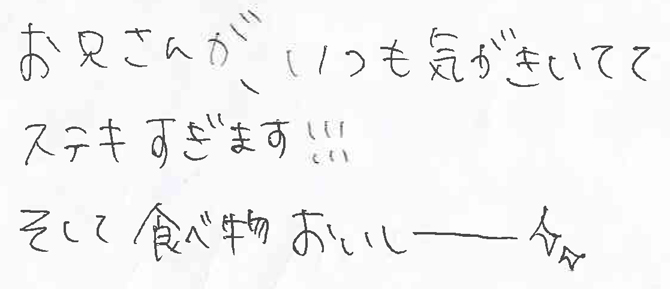 お兄さんが、いつも気がきいてて
ステキすぎます!!!
そして食べ物おいしーー✧✧